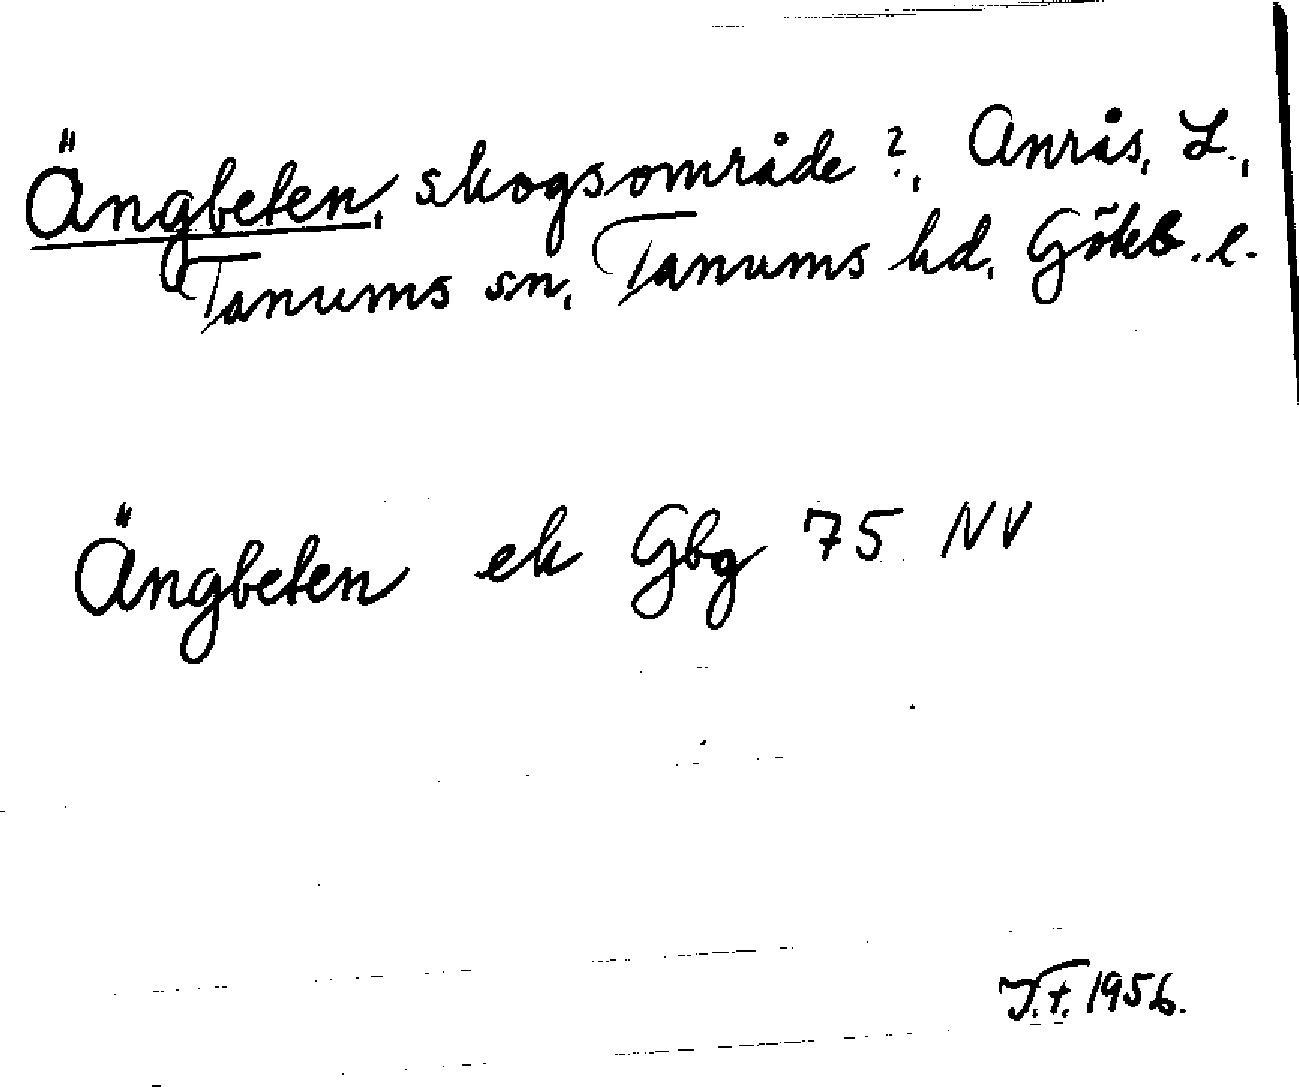 Ängbeten, skogsområde?, Anrås, L.,
Tanums sn, Tanums hd. Göteb. l.
Ängbeten ek Gbg 75 NV
1956.